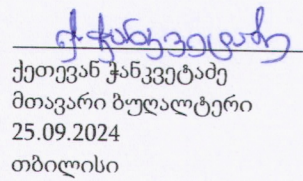 ქ. ჭანკვეტაძე
ქეთევან ჭანკვეტაძე
მთავარი ბუღალტერი
25.09.2024
თბილისი